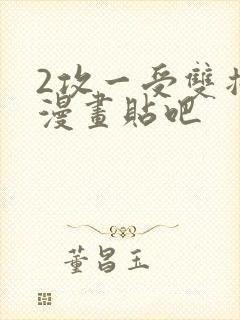 2攻一受雙
漫畫貼吧
董昌玉